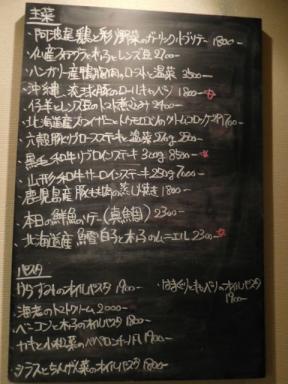 主菜
・阿波尾鶏と彩り野菜のガーリックソテー 1800
・仏産フォアグラと木の子とレンズ豆 2700
・ハンガリー産鴨胸肉のロースト温菜 2500
・沖縄 琉球豚のロールキャベツ 1800
・仔羊とレンズ豆のトマト煮込み 2400
・北海道産 とトウモロコシのクリームコロッケ 1700
・六穀豚リブロースステーキと温菜 270g 2500
・黒毛和牛リブロインステーキ 300g 8500
・山形和牛サーロインステーキ 250g 7000
・鹿児島産豚もも肉の蒸し焼き 1800
・本日の鮮魚のソテー(真鯛) 2300
・北海道産鱈白子と木の子のムニエル 2300
パスタ
・からすみのオイルパスタ 1900
・はまぐりとキャベツのオイルパスタ 1900
・海老のトマトクリーム 2000
・ベーコンと木の子のオイルパスタ 1800
・カキと小松菜のペペロンチーノ 1800
・シラスとちんげん菜のオイルパスタ 1800